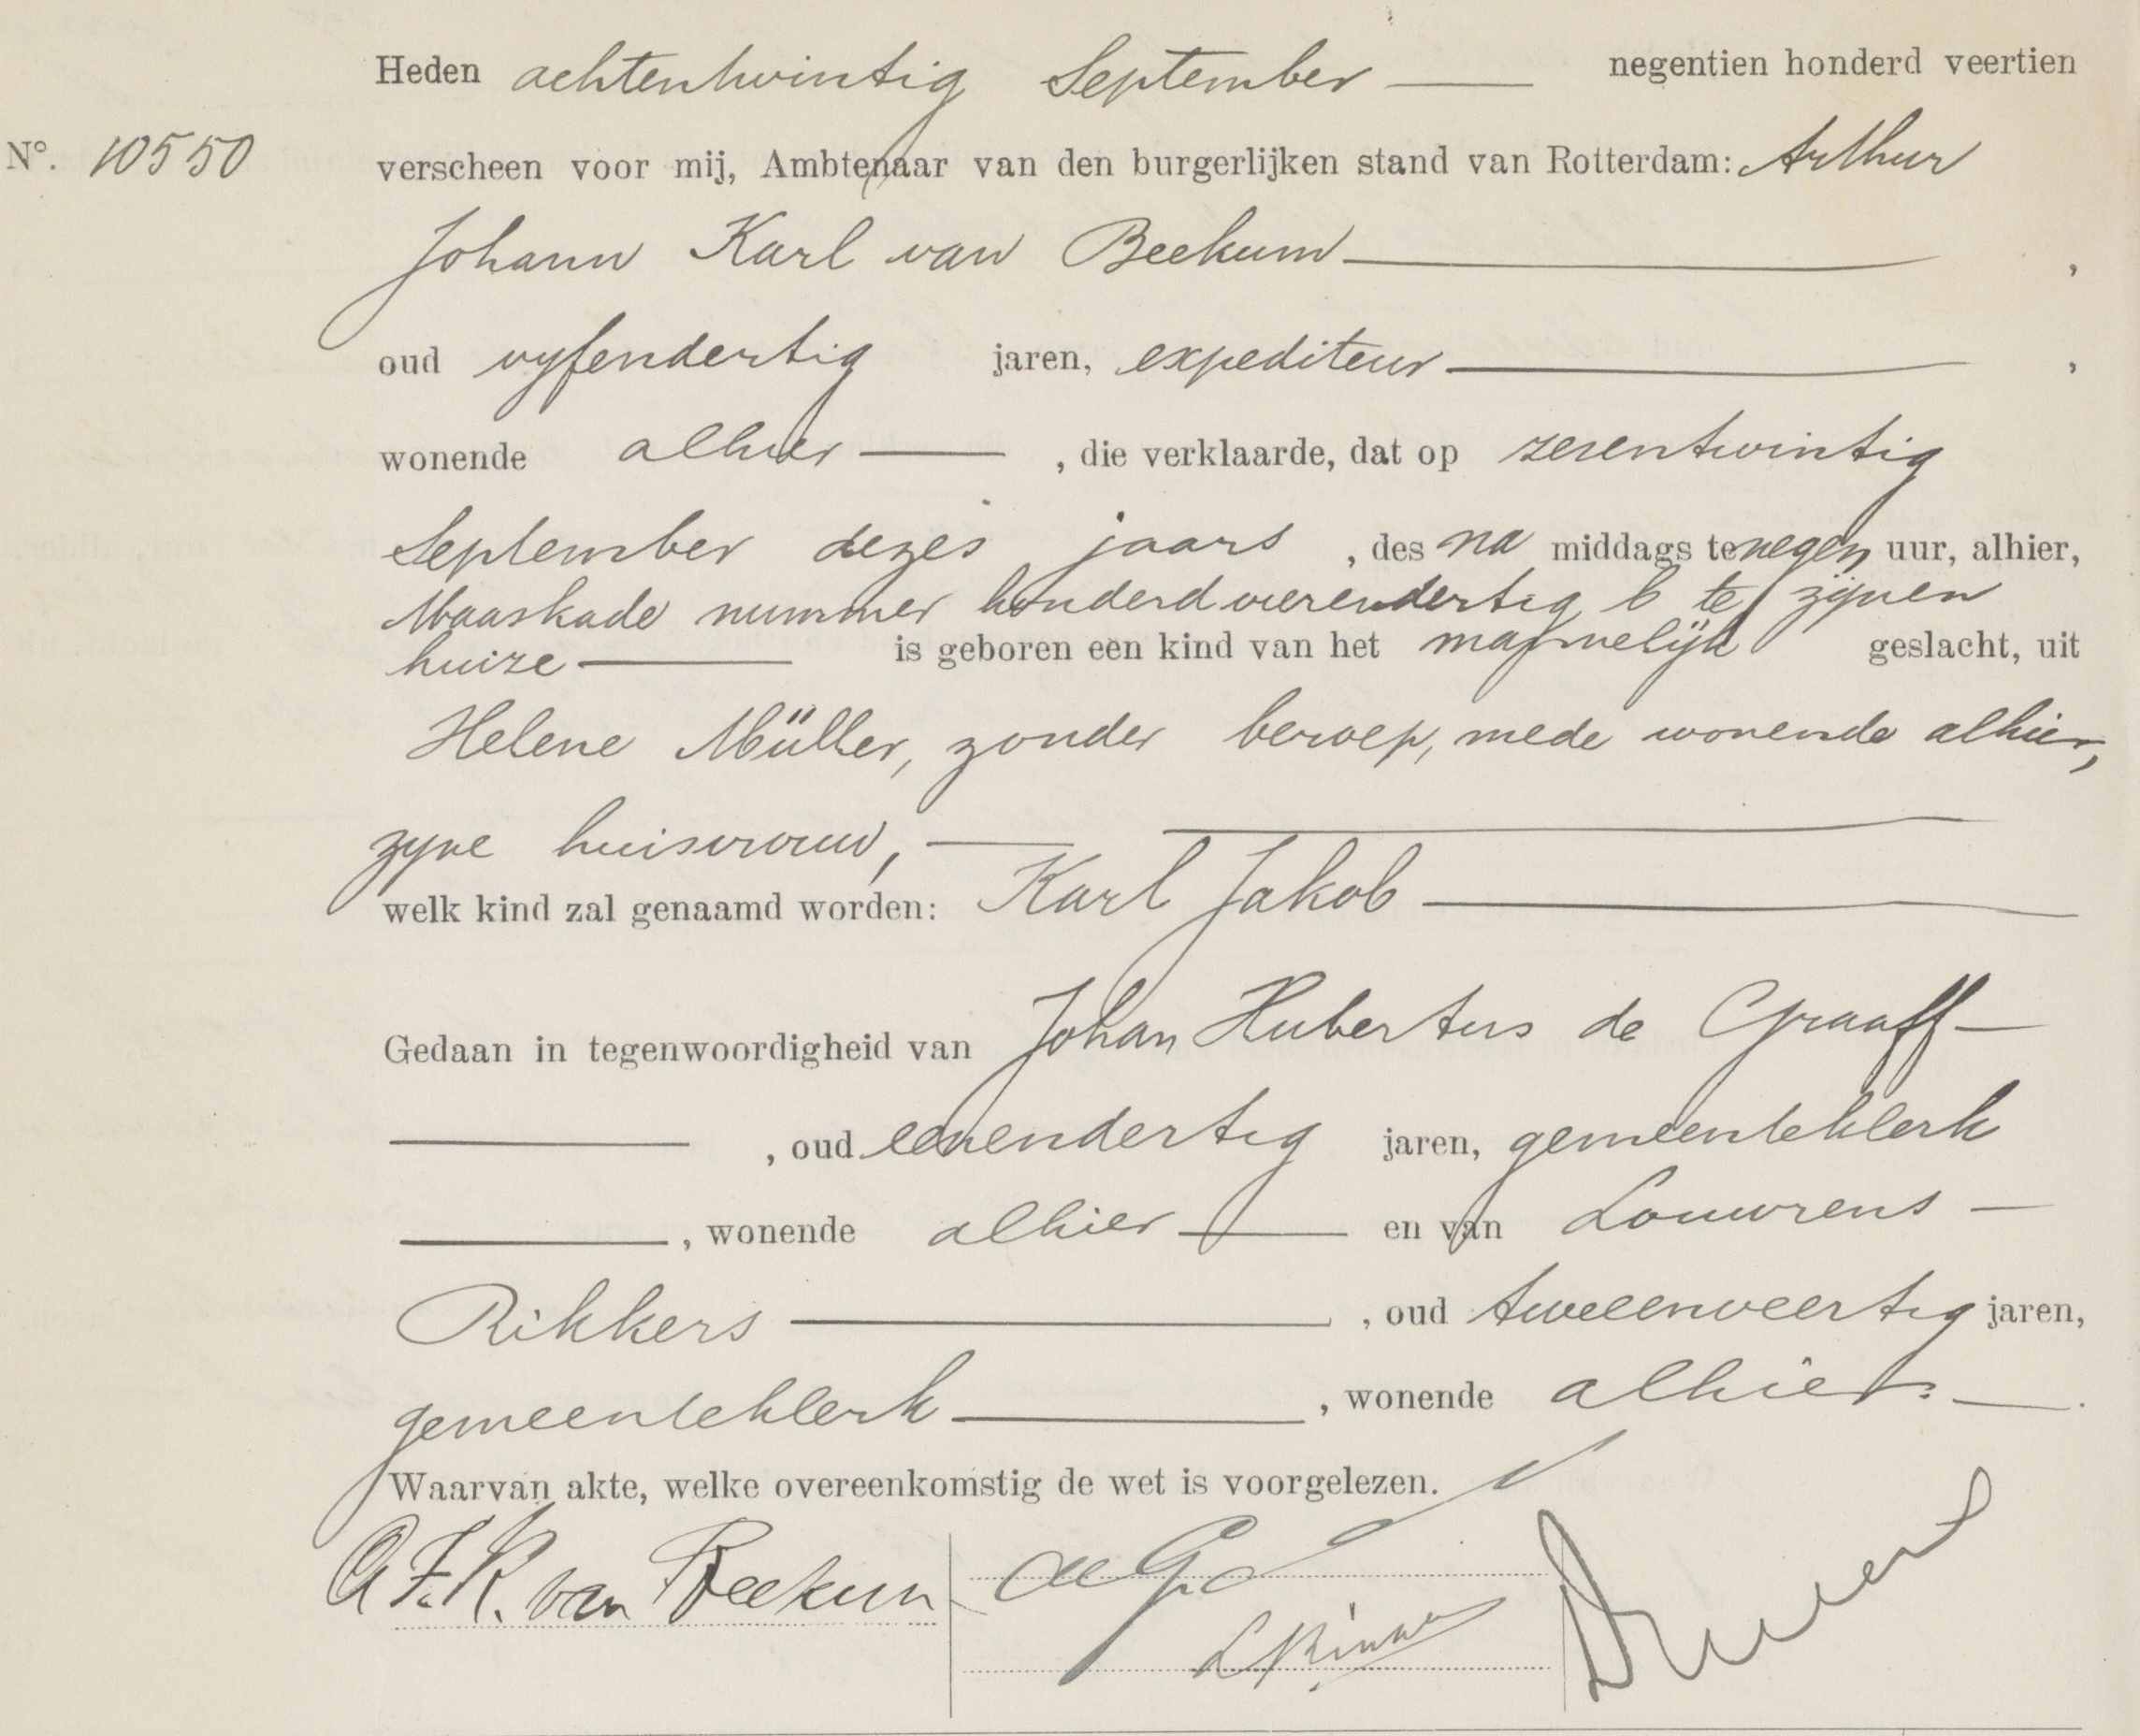 Heden achtentwintig September negentien honderd veertien
N°. 10550 verscheen voor mij, Ambtenaar van den burgerlijken stand van Rotterdam: Arthur
Johann Karl van Beekum,
oud vyfendertig jaren, expediteur,
wonende alhier, die verklaarde, dat op zesentwintig
September dezes jaars, des na middags te negen uur, alhier,
Maaskade nummer honderdvierendertig b te zijnen
huize is geboren een kind van het mannelijk geslacht, uit
Helene Müller, zonder beroep, mede wonende alhier,
zyne huisvrouw,
welk kind zal genaamd worden: Karl Jakob
Gedaan in tegenwoordigheid van Johan Hubertus de Graaff
, oud eenendertig jaren, gemeenteklerk
, wonende alhier en van Louwrens
Rikkers, oud tweeenveertig jaren,
gemeenteklerk, wonende alhier.
Waarvan akte, welke overeenkomstig de wet is voorgelezen.
A. J. K. van Beekum